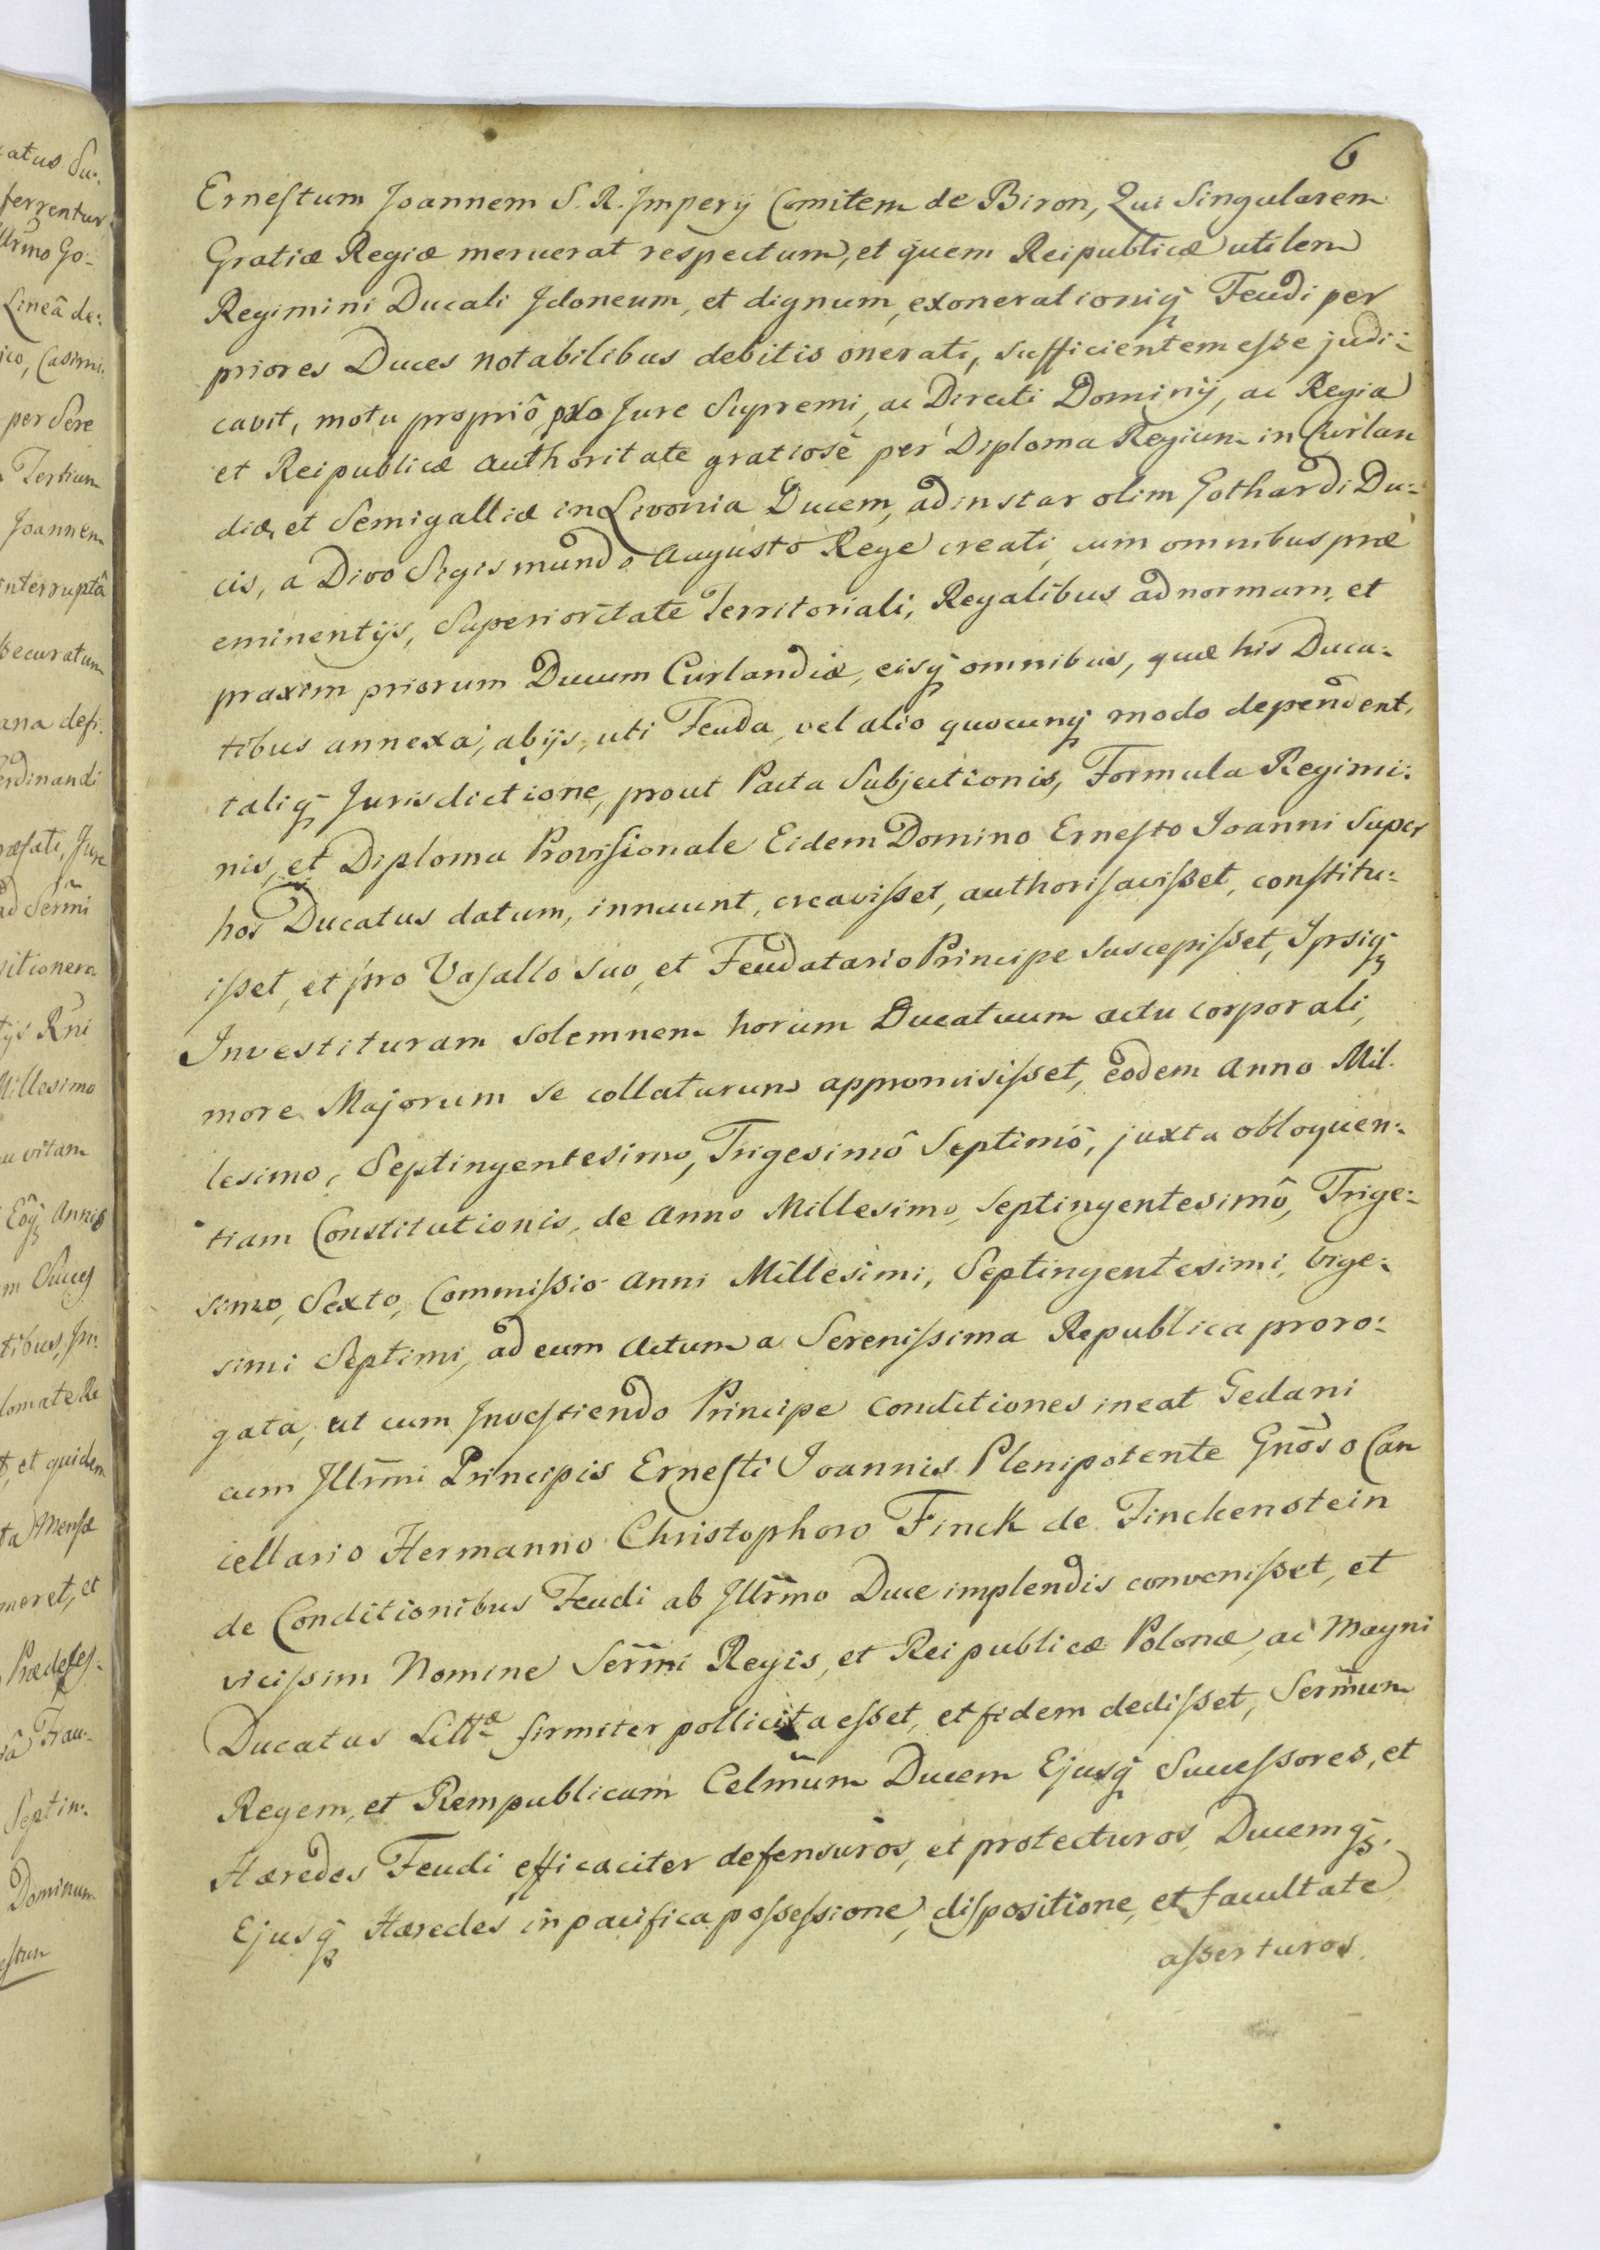 6
Ernestum Joannem S. R. Imperij Comitem de Biron, Qui Singularem
Gratiæ Regiæ meruerat respectum, et quem Reipublicæ utilem
Regimini Ducali Idoneum, et dignum, exonerationiq Feudi per
priores Duces notabilibus debitis onerati, sufficientem esse judi:
cavit, motu propriô pro Jure Supremi, ac Directi Dominij, ac Regia
et Reipublicæ authoritate gratiosè per Diploma Regium in Curlan
diæ, et Semigalliæ in Livonia Ducem, ad instar olim Gothardi Du:
cis, a Divo Sigismundo Augusto Rege creati, cum omnibus præ
eminentijs, Superioritate Territoriali, Regalibus ad normam, et
praxim priorum Ducum Curlandiæ, eisq omnibus, quæ his Duca:
tibus annexa, ab ijs, uti Feuda, vel alio quocunq modo dependent,
taliq Jurisdictione, prout Pacta Subjectionis, Formula Regimi:
nis, et Diploma Provisionale Eidem Domino Ernesto Joanni super
hos Ducatus datum, innuunt, creavisset, authorisavisset, constitu:
isset, et pro Vasallo suo, et Feudatario Principe suscepisset, Ipsiq
Investituram solemnem horum Ducatuum actu corporali,
more Majorum se collaturum appromisisset, eodem Anno Mil.
lesimo, Septingentesimo, Trigesimô Septimô, juxta obloquen:
tiam Constitutionis, de Anno Millesimo, Septingentesimô, Trige:
simo, Sexto, Commissio Anni Millesimi, Septingentesimi, Vige:
simi Septimi, ad eum Actum a Serenissima Republica proro:
gata, ut cum Investiendo Principe Conditiones ineat Gedani
cum Illrmi Principis Ernesti Joannis Plenipotente Gnoso Can
cellario Hermanno Christophoro Finck de Finckenstein
de Conditionibus Feudi ab Illrmo Duce implendis convenisset, et
vicissim Nomine Sermi Regis, et Reipublicæ Polonæ, ac Magni
Ducatus Littæ firmiter pollicita esset, et fidem dedisset, Sermum
Regem, et Rempublicam Celmum Ducem Ejusq Successores, et
Hæredes Feudi efficaciter defensuros, et protecturos, Ducemq,
Ejusq Hæredes in pacifica possessione, dispositione, et facultate
asserturos.